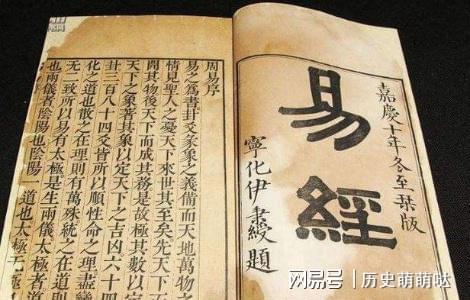 嘉慶十年冬至栞版
易經
寧化伊秉綬題
周易序
易之為書卦爻彖象之義備而天地萬物之
情見聖人之憂天下來世其至矣先天下而
開其物後天下而成其務是故極其數以定
天下之象著其象以定天下之吉凶六十四
卦三百八十四爻皆所以順性命之理盡變
化之道也散之在理則有萬殊統之在道則
无二致所以易有太極是生兩儀太極者道
也兩儀者陰陽也陰陽一道也太極无極
网易号 | 历史萌萌哒